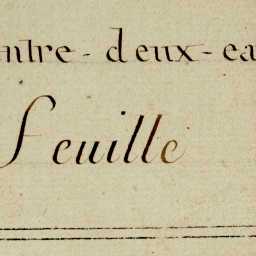 ntre-deux-ea
Feuille